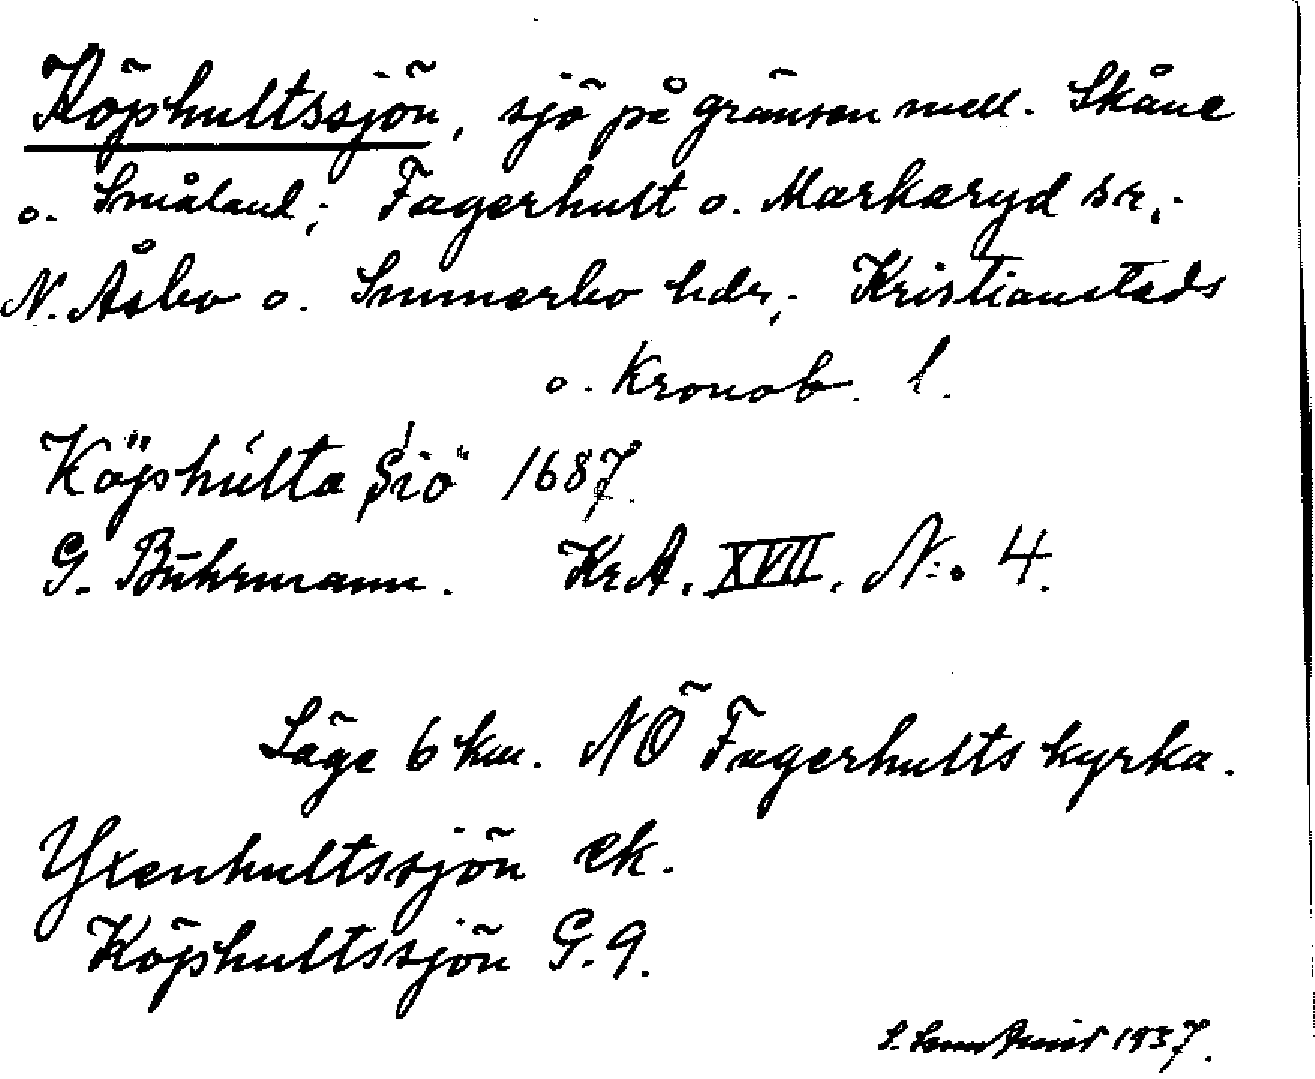 Köphultssjön, sjö på gränsen mell. Skåne
o. Småland; Fagerhult o. Markaryd sr;
N. Åsbo o. Sunnerbo hdr; Kristianstads
o. Kronob. l.
Köphúlta Siö 1687.
G. Buhrmann. Kr.A. XVII. N:o 4.
Läge 6 km. NÖ Fagerhults kyrka.
Yxenhultssjön ek.
Köphultssjön G.9.
S. 1937.